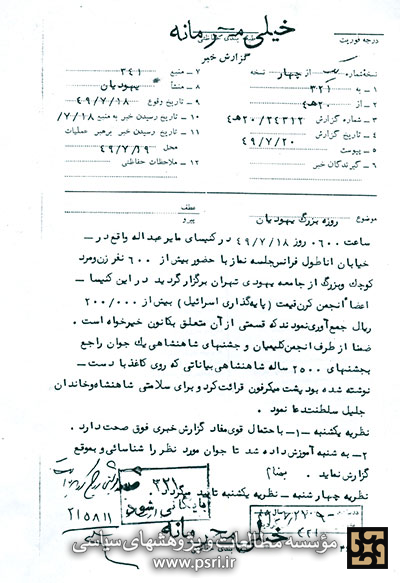 خیلی محرمانه
درجه فوریت
گزارش خبر
نسخه شماره یک از چهار نسخه
۱ - به ۳۲۱
۲ - از ۲۰هـ۴
۳ - شماره گزارش ۲۰/۲۴۳۱۲هـ۴
۴ - تاریخ گزارش ۴۹/۷/۲۰
۵ - پیوست
۶ - گیرندگان خبر
۷ - منبع ۳۴۱
۸ - منشأ یهودیان
۹ - تاریخ وقوع ۴۹/۷/۱۸
۱۰ - تاریخ رسیدن خبر به منبع ۷/۱۸/
۱۱ - تاریخ رسیدن خبر برهبر عملیات
محل ۴۹/۷/۱۹
۱۲ - ملاحظات حفاظتی
موضوع روزه بزرگ یهودیان
عطف
پیرو
ساعت ۰۶۰۰ روز ۴۹/۷/۱۸ در کنیسای مایر عبداله واقع در -
خیابان اناطول فرانس جلسه نماز با حضور بیش از ۶۰۰ نفر زن و مرد
کوچک و بزرگ از جامعه یهودی تهران برگزار گردید در این کنیسا -
اعضاء انجمن کرن قیمت (پایه گذاری اسرائیل) بیش از ۲۰۰/۰۰۰
ریال جمع آوری نمودند که قسمتی از آن متعلق بکانون خیرخواه است .
ضمنا از طرف انجمن کلیمیان و جشنهای شاهنشاهی یک جوان راجع
بجشنهای ۲۵۰۰ ساله شاهنشاهی بیاناتی که روی کاغذ با دست -
نوشته شده بود پشت میکرفون قرائت کرد و برای سلامتی شاهنشاه و خاندان
جلیل سلطنت دعا نمود .
نظریه یکشنبه - ۱- با احتمال قوی مفاد گزارش خبری فوق صحت دارد .
۲- به شنبه آموزش داده شد تا جوان مورد نظر را شناسائی و بموقع
گزارش نماید .
نظریه چهارشنبه - نظریه یکشنبه تائید میگردد
بایگانی شود
۲۱۵۸۱۱
خیلی محرمانه
مؤسسه مطالعات و پژوهشهای سیاسی
www.psri.ir